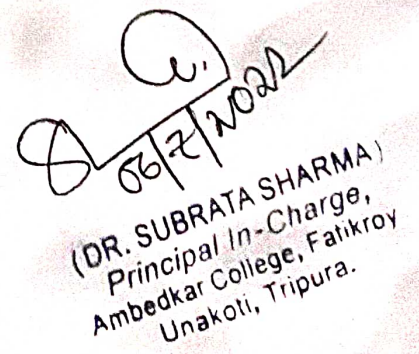 06/7/2022
(DR. SUBRATA SHARMA)
Principal In-Charge,
Ambedkar College, Fatikroy
Unakoti, Tripura.